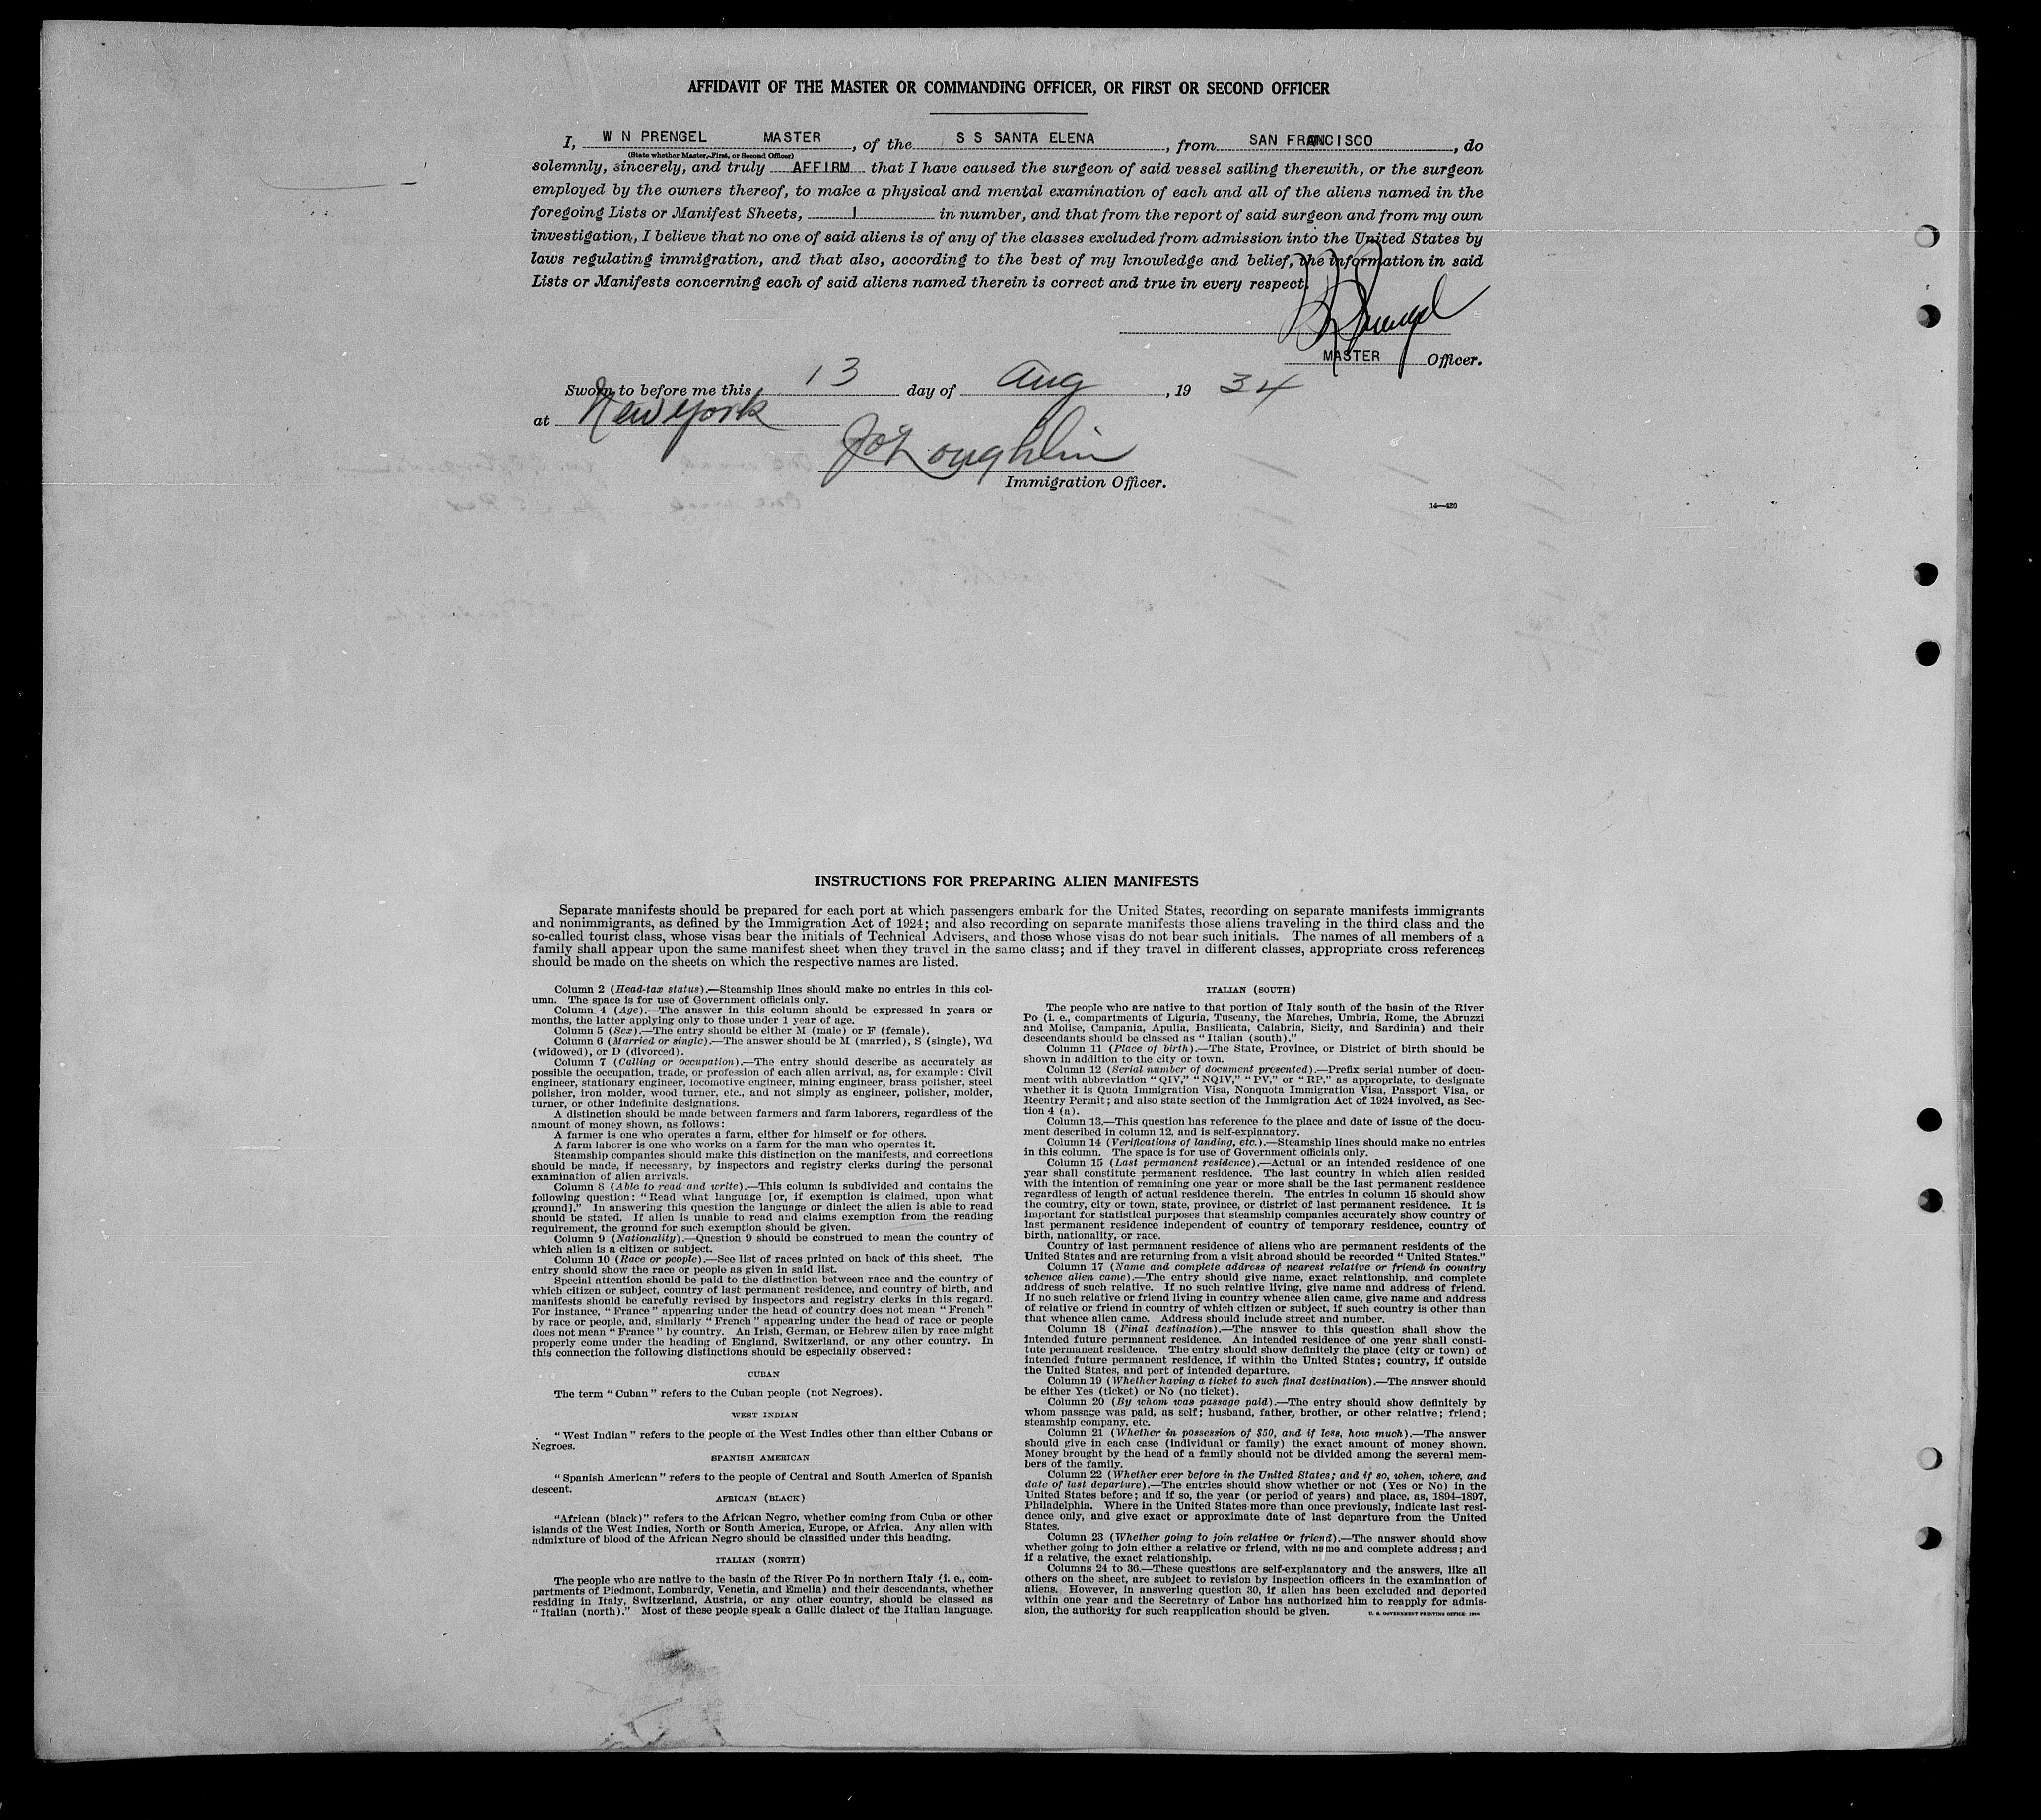 AFFIDAVIT OF THE MASTER OR COMMANDING OFFICER, OR FIRST OR SECOND OFFICER
I, W N PRENGEL MASTER, of the S S SANTA ELENA, from SAN FRANCISCO, do
(State whether Master, First, or Second Officer)
solemnly, sincerely, and truly AFFIRM that I have caused the surgeon of said vessel sailing therewith, or the surgeon
employed by the owners thereof, to make a physical and mental examination of each and all of the aliens named in the
foregoing Lists or Manifest Sheets, 1 in number, and that from the report of said surgeon and from my own
investigation, I believe that no one of said aliens is of any of the classes excluded from admission into the United States by
laws regulating immigration, and that also, according to the best of my knowledge and belief, the information in said
Lists or Manifests concerning each of said aliens named therein is correct and true in every respect.
Prengel
MASTER Officer.
Sworn to before me this 13 day of Aug, 19 34
at New York
J O'Loughlin
Immigration Officer.
14—420
INSTRUCTIONS FOR PREPARING ALIEN MANIFESTS
Separate manifests should be prepared for each port at which passengers embark for the United States, recording on separate manifests immigrants
and nonimmigrants, as defined by the Immigration Act of 1924; and also recording on separate manifests those aliens traveling in the third class and the
so-called tourist class, whose visas bear the initials of Technical Advisers, and those whose visas do not bear such initials. The names of all members of a
family shall appear upon the same manifest sheet when they travel in the same class; and if they travel in different classes, appropriate cross references
should be made on the sheets on which the respective names are listed.
Column 2 (Head-tax status).—Steamship lines should make no entries in this col-
umn. The space is for use of Government officials only.
Column 4 (Age).—The answer in this column should be expressed in years or
months, the latter applying only to those under 1 year of age.
Column 5 (Sex).—The entry should be either M (male) or F (female).
Column 6 (Married or single).—The answer should be M (married), S (single), Wd
(widowed), or D (divorced).
Column 7 (Calling or occupation).—The entry should describe as accurately as
possible the occupation, trade, or profession of each alien arrival, as, for example: Civil
engineer, stationary engineer, locomotive engineer, mining engineer, brass polisher, steel
polisher, iron molder, wood turner, etc., and not simply as engineer, polisher, molder,
turner, or other indefinite designations.
A distinction should be made between farmers and farm laborers, regardless of the
amount of money shown, as follows:
A farmer is one who operates a farm, either for himself or for others.
A farm laborer is one who works on a farm for the man who operates it.
Steamship companies should make this distinction on the manifests, and corrections
should be made, if necessary, by inspectors and registry clerks during the personal
examination of alien arrivals.
Column 8 (Able to read and write).—This column is subdivided and contains the
following question: "Read what language [or, if exemption is claimed, upon what
ground]." In answering this question the language or dialect the alien is able to read
should be stated. If alien is unable to read and claims exemption from the reading
requirement, the ground for such exemption should be given.
Column 9 (Nationality).—Question 9 should be construed to mean the country of
which alien is a citizen or subject.
Column 10 (Race or people).—See list of races printed on back of this sheet. The
entry should show the race or people as given in said list.
Special attention should be paid to the distinction between race and the country of
which citizen or subject, country of last permanent residence, and country of birth, and
manifests should be carefully revised by inspectors and registry clerks in this regard.
For instance, "France" appearing under the head of country does not mean "French"
by race or people, and, similarly "French" appearing under the head of race or people
does not mean "France" by country. An Irish, German, or Hebrew alien by race might
properly come under the heading of England, Switzerland, or any other country. In
this connection the following distinctions should be especially observed:
CUBAN
The term "Cuban" refers to the Cuban people (not Negroes).
WEST INDIAN
"West Indian" refers to the people of the West Indies other than either Cubans or
Negroes.
SPANISH AMERICAN
"Spanish American" refers to the people of Central and South America of Spanish
descent.
AFRICAN (BLACK)
"African (black)" refers to the African Negro, whether coming from Cuba or other
islands of the West Indies, North or South America, Europe, or Africa. Any alien with
admixture of blood of the African Negro should be classified under this heading.
ITALIAN (NORTH)
The people who are native to the basin of the River Po in northern Italy (i. e., com-
partments of Piedmont, Lombardy, Venetia, and Emelia) and their descendants, whether
residing in Italy, Switzerland, Austria, or any other country, should be classed as
"Italian (north)." Most of these people speak a Gallic dialect of the Italian language.
ITALIAN (SOUTH)
The people who are native to that portion of Italy south of the basin of the River
Po (i. e., compartments of Liguria, Tuscany, the Marches, Umbria, Rome, the Abruzzi
and Molise, Campania, Apulia, Basilicata, Calabria, Sicily, and Sardinia) and their
descendants should be classed as "Italian (south)."
Column 11 (Place of birth).—The State, Province, or District of birth should be
shown in addition to the city or town.
Column 12 (Serial number of document presented).—Prefix serial number of docu-
ment with abbreviation "QIV," "NQIV," "PV," or "RP," as appropriate, to designate
whether it is Quota Immigration Visa, Nonquota Immigration Visa, Passport Visa, or
Reentry Permit; and also state section of the Immigration Act of 1924 involved, as Sec-
tion 4 (a).
Column 13.—This question has reference to the place and date of issue of the docu-
ment described in column 12, and is self-explanatory.
Column 14 (Verifications of landing, etc.).—Steamship lines should make no entries
in this column. The space is for use of Government officials only.
Column 15 (Last permanent residence).—Actual or an intended residence of one
year shall constitute permanent residence. The last country in which alien resided
with the intention of remaining one year or more shall be the last permanent residence
regardless of length of actual residence therein. The entries in column 15 should show
the country, city or town, state, province, or district of last permanent residence. It is
important for statistical purposes that steamship companies accurately show country of
last permanent residence independent of country of temporary residence, country of
birth, nationality, or race.
Country of last permanent residence of aliens who are permanent residents of the
United States and are returning from a visit abroad should be recorded "United States."
Column 17 (Name and complete address of nearest relative or friend in country
whence alien came).—The entry should give name, exact relationship, and complete
address of such relative. If no such relative living, give name and address of friend.
If no such relative or friend living in country whence alien came, give name and address
of relative or friend in country of which citizen or subject, if such country is other than
that whence alien came. Address should include street and number.
Column 18 (Final destination).—The answer to this question shall show the
intended future permanent residence. An intended residence of one year shall consti-
tute permanent residence. The entry should show definitely the place (city or town) of
intended future permanent residence, if within the United States; country, if outside
the United States, and port of intended departure.
Column 19 (Whether having a ticket to such final destination).—The answer should
be either Yes (ticket) or No (no ticket).
Column 20 (By whom was passage paid).—The entry should show definitely by
whom passage was paid, as self; husband, father, brother, or other relative; friend;
steamship company, etc.
Column 21 (Whether in possession of $50, and if less, how much).—The answer
should give in each case (individual or family) the exact amount of money shown.
Money brought by the head of a family should not be divided among the several mem-
bers of the family.
Column 22 (Whether ever before in the United States; and if so, when, where, and
date of last departure).—The entries should show whether or not (Yes or No) in the
United States before; and if so, the year (or period of years) and place, as, 1894-1897,
Philadelphia. Where in the United States more than once previously, indicate last resi-
dence only, and give exact or approximate date of last departure from the United
States.
Column 23 (Whether going to join relative or friend).—The answer should show
whether going to join either a relative or friend, with name and complete address; and
if a relative, the exact relationship.
Columns 24 to 36.—These questions are self-explanatory and the answers, like all
others on the sheet, are subject to revision by inspection officers in the examination of
aliens. However, in answering question 30, if alien has been excluded and deported
within one year and the Secretary of Labor has authorized him to reapply for admis-
sion, the authority for such reapplication should be given.
U. S. GOVERNMENT PRINTING OFFICE: